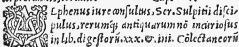 Alphenus iureconsultus, Ser. Sulpitii disci-
pulus, rerumq; antiquarum nõ incuriosus
in lib. digestorũ.xxx.&.iiii. Collectaneorũ